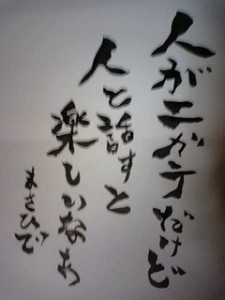 人が二が手だけど
人と話すと
楽しいなあ
まさひで